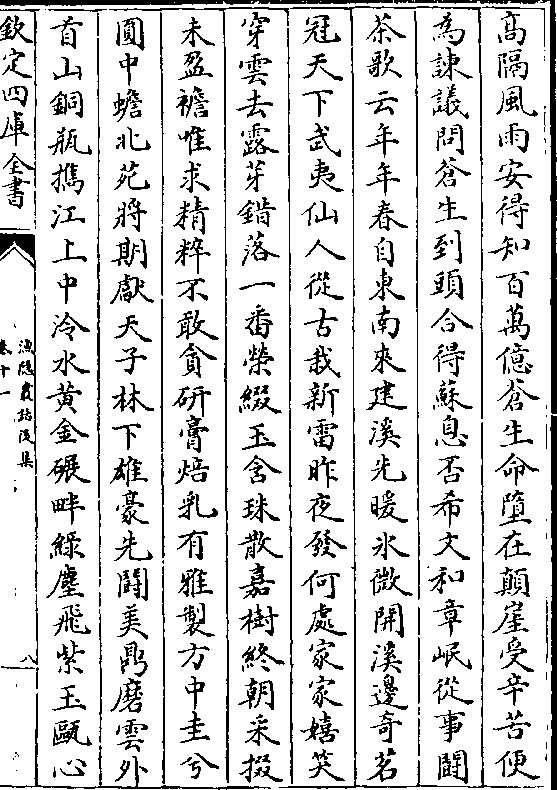 高隔風雨安得知百萬億蒼生命墮在顛崖受辛苦便
為諫議問蒼生到頭合得蘇息否希文和章岷從事鬭
茶歌云年年春自東南來建溪先暖氷微開溪邊奇茗
冠天下武夷仙人從古栽新雷昨夜發何處家家嬉笑
穿雲去露芽錯落一番榮綴玉含珠散嘉樹終朝采掇
未盈襜唯求精粹不敢貪研膏焙乳有雅製方中圭兮
圓中蟾北苑將期獻天子林下雄豪先鬭美鼎磨雲外
首山銅瓶擕江上中泠水黄金碾畔綠塵飛紫玉甌心
欽定四庫全書
漁隱叢話後集
卷十一
八